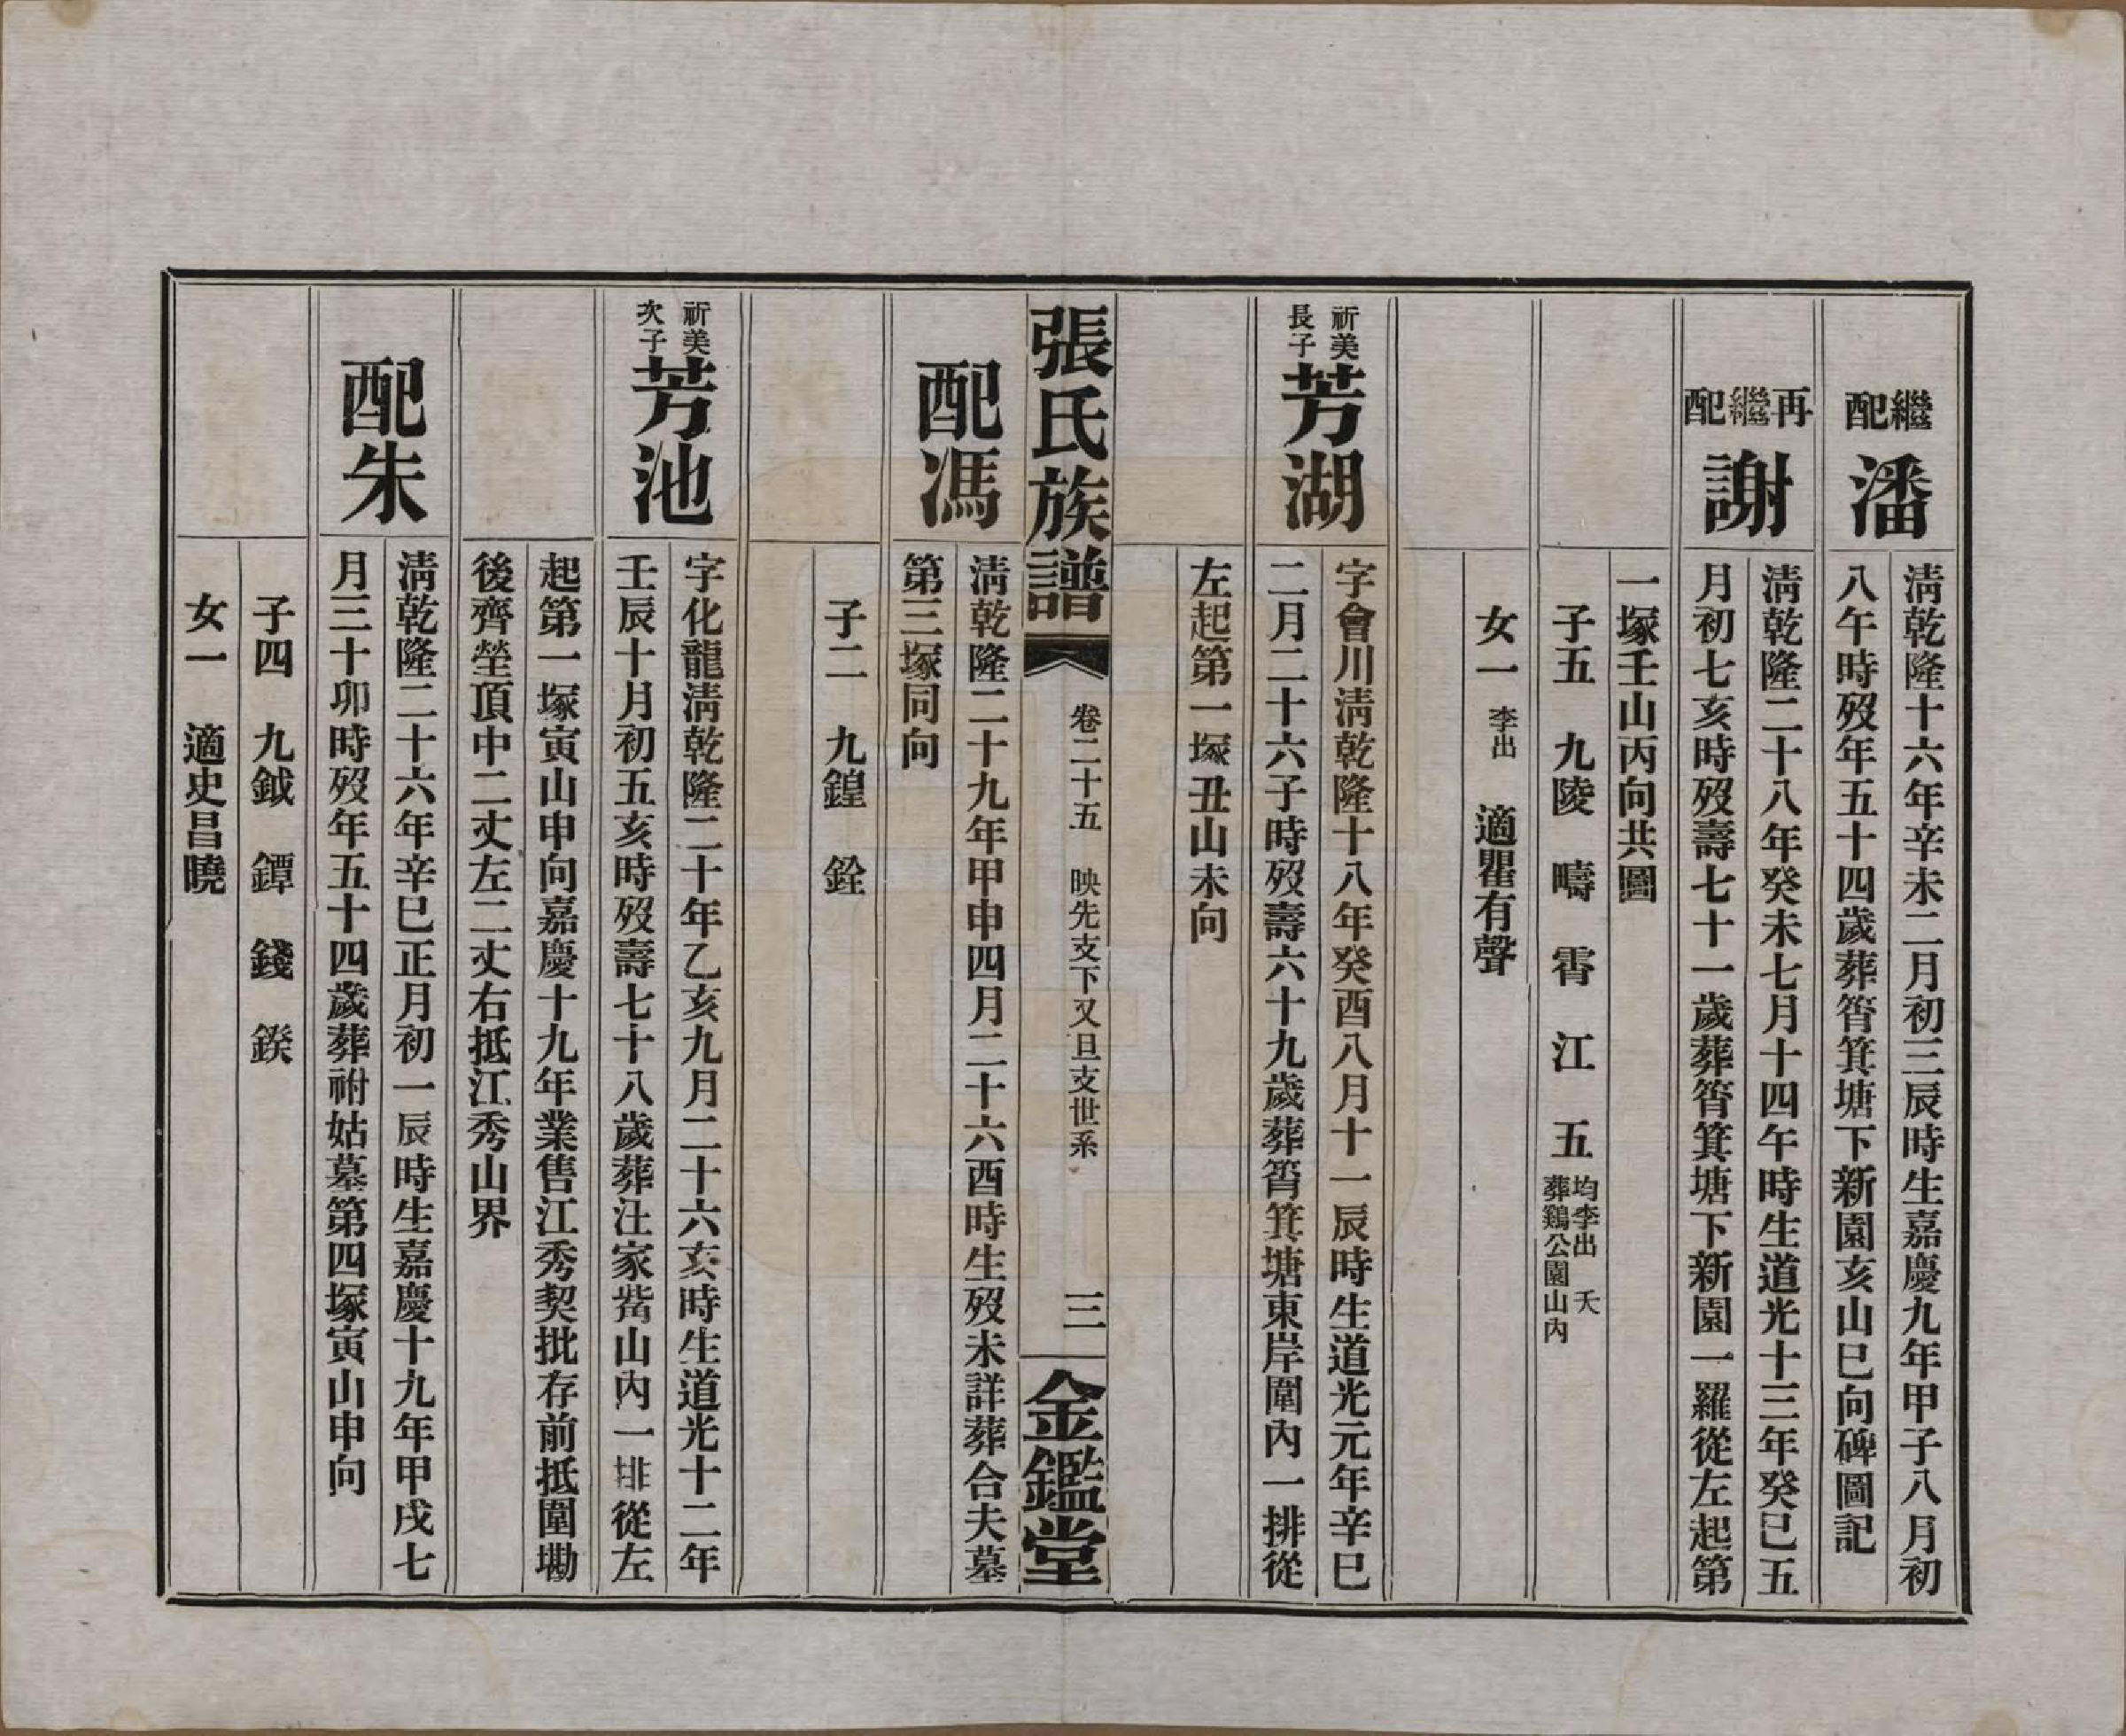 繼配
潘
清乾隆十六年辛未二月初三辰時生嘉慶九年甲子八月初
八午時歿年五十四歲葬筲箕塘下新園亥山巳向碑圖記
再繼配
謝
清乾隆二十八年癸未七月十四午時生道光十三年癸巳五
月初七亥時歿壽七十一歲葬筲箕塘下新園一羅從左起第
一塚壬山丙向共圖
子五 九陵 疇 霄 江 五 均李出 夭
葬鷄公園山內
女一 李出 適瞿有聲
祈美
長子
芳湖
字會川清乾隆十八年癸酉八月十一辰時生道光元年辛巳
二月二十六子時歿壽六十九歲葬筲箕塘東岸圍內一排從
左起第一塚丑山未向
張氏族譜
卷二十五 映先支下又旦支世系
三
金鑑堂
配馮
清乾隆二十九年甲申四月二十六酉時生歿未詳葬合夫墓
第三塚同向
子二 九鍠 銓
祈美
次子
芳池
字化龍清乾隆二十年乙亥九月二十六亥時生道光十二年
壬辰十月初五亥時歿壽七十八歲葬汢家觜山內一排從左
起第一塚寅山申向嘉慶十九年業售江秀契批存前抵圍墈
後齊塋頂中二丈左二丈右抵江秀山界
配朱
清乾隆二十六年辛巳正月初一辰時生嘉慶十九年甲戌七
月三十卯時歿年五十四歲葬祔姑墓第四塚寅山申向
子四 九鉞 鐔 錢 鍨
女一 適史昌曉